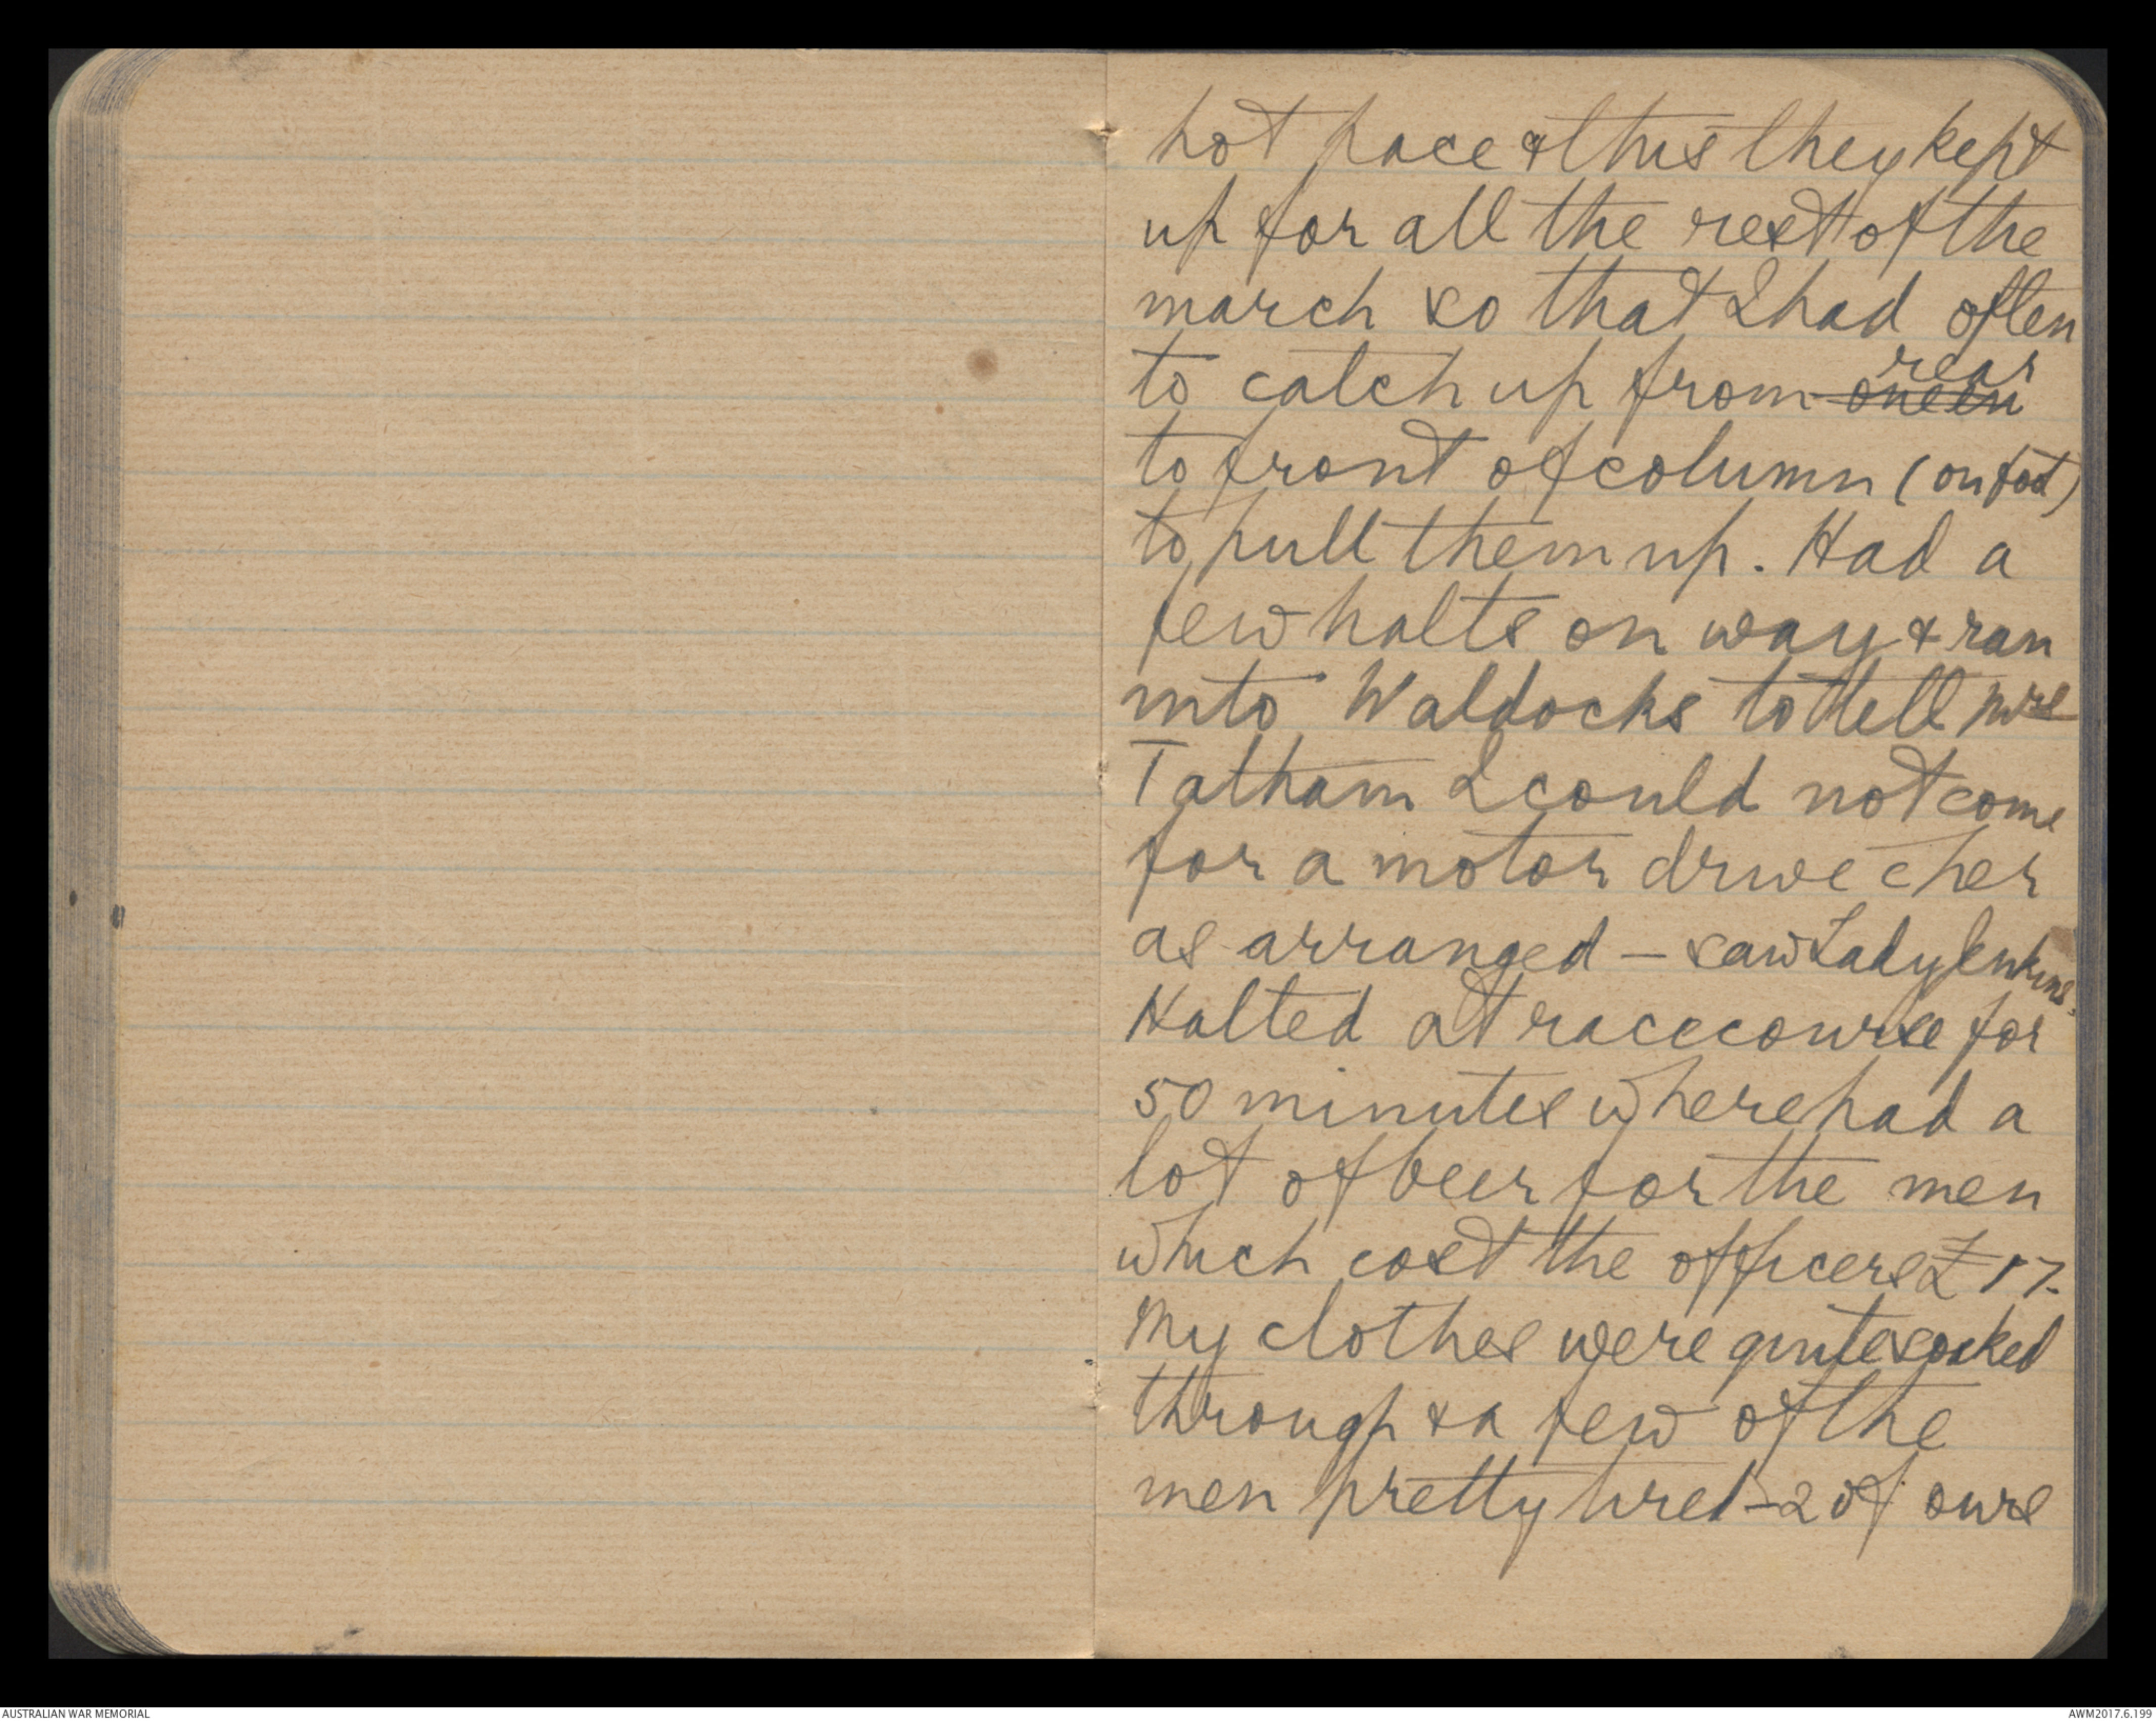 hot pace & this they kept
up for all the rest of the
march so that I had often
to catch up from rear
to front of column (on foot)
to pull them up. Had a
few halts on way & ran
into Waldocks to tell Mrs
Tatham I could not come
for a motor drive c her
as arranged – saw Lady Jenkins.
Halted at racecourse for
50 minutes where had a
lot of beer for the men
which cost the officers £17.
My clothes were quite soaked
through & a few of the
men pretty tired – 2 of ours
AUSTRALIAN WAR MEMORIAL
AWM2017.6.199